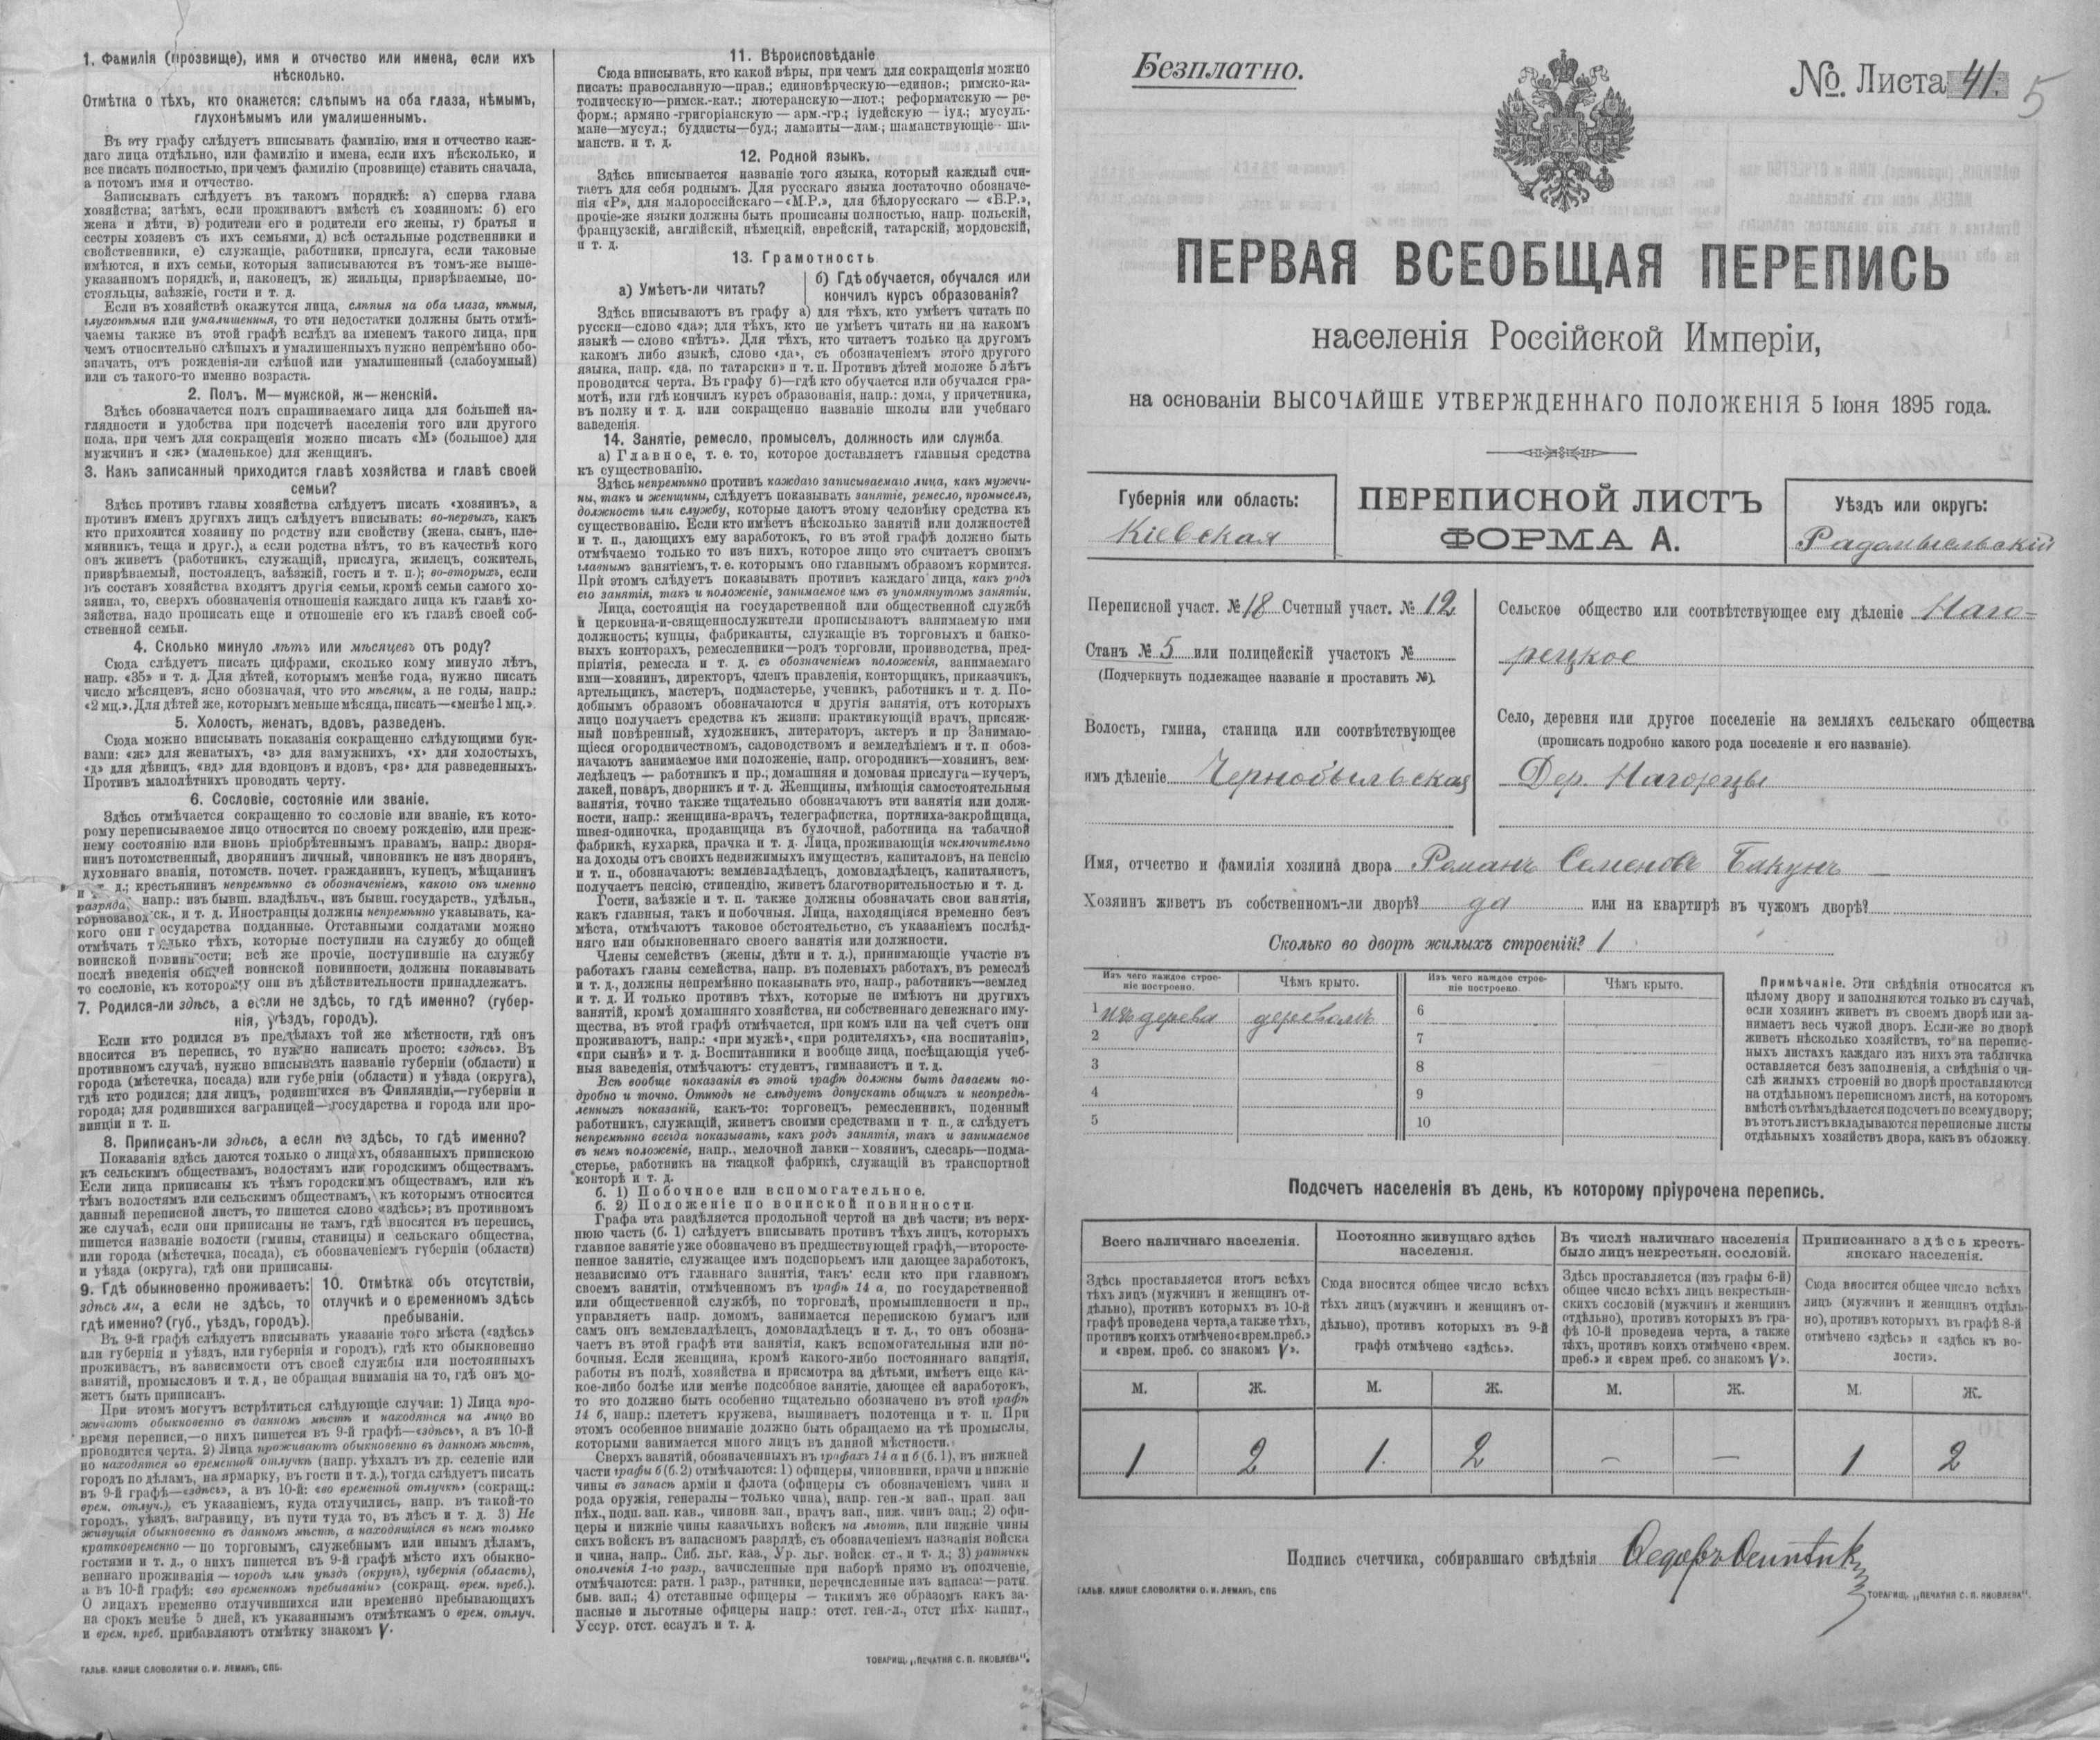 1. Фамилія (прозвище), имя и отчество или имена, если ихъ
нѣсколько.
Отмѣтка о тѣхъ, кто окажется: слѣпымъ на оба глаза, нѣмымъ,
глухонѣмымъ или умалишеннымъ.
Въ эту графу слѣдуетъ вписывать фамилію, имя и отчество каж-
даго лица отдѣльно, или фамилію и имена, если ихъ нѣсколько, и
все писать полностью, при чемъ фамилію (прозвище) ставить сначала,
а потомъ имя и отчество.
Записывать слѣдуетъ въ такомъ порядкѣ: а) сперва глава
хозяйства; затѣмъ, если проживаютъ вмѣстѣ съ хозяиномъ: б) его
жена и дѣти, в) родители его и родители его жены, г) братья и
сестры хозяевъ съ ихъ семьями, д) всѣ остальные родственники и
свойственники, е) служащіе, работники, прислуга, если таковые
имѣются, и ихъ семьи, которыя записываются въ томъ-же выше-
указанномъ порядкѣ, и, наконецъ, ж) жильцы, призрѣваемые, по-
стояльцы, заѣзжіе, гости и т. д.
Если въ хозяйствѣ окажутся лица, слѣпыя на оба глаза, нѣмыя,
глухонѣмыя или умалишенныя, то эти недостатки должны быть отмѣ-
чаемы также въ этой графѣ вслѣдъ за именемъ такого лица, при
чемъ относительно слѣпыхъ и умалишенныхъ нужно непремѣнно обо-
значать, отъ рожденія-ли слѣпой или умалишенный (слабоумный)
или съ такого-то именно возраста.
2. Полъ. М—мужской, ж—женскій.
Здѣсь обозначается полъ спрашиваемаго лица для большей на-
глядности и удобства при подсчетѣ населенія того или другого
пола, при чемъ для сокращенія можно писать «М» (большое) для
мужчинъ и «ж» (маленькое) для женщинъ.
3. Какъ записанный приходится главѣ хозяйства и главѣ своей
семьи?
Здѣсь противъ главы хозяйства слѣдуетъ писать «хозяинъ», а
противъ именъ другихъ лицъ слѣдуетъ вписывать: во-первыхъ, какъ
кто приходится хозяину по родству или свойству (жена, сынъ, пле-
мянникъ, теща и друг.), а если родства нѣтъ, то въ качествѣ кого
онъ живетъ (работникъ, служащій, прислуга, жилецъ, сожитель,
призрѣваемый, постоялецъ, заѣзжій, гость и т. п.); во-вторыхъ, если
въ составъ хозяйства входятъ другія семьи, кромѣ семьи самого хо-
зяина, то, сверхъ обозначенія отношенія каждаго лица къ главѣ хо-
зяйства, надо прописать еще и отношеніе его къ главѣ своей соб-
ственной семьи.
4. Сколько минуло лѣтъ или мѣсяцевъ отъ роду?
Сюда слѣдуетъ писать цифрами, сколько кому минуло лѣтъ,
напр. «35» и т. д. Для дѣтей, которымъ менѣе года, нужно писать
число мѣсяцевъ, ясно обозначая, что это мѣсяцы, а не годы, напр.:
«2 мц.». Для дѣтей же, которымъ меньше мѣсяца, писать—«менѣе 1 мц.».
5. Холостъ, женатъ, вдовъ, разведенъ.
Сюда можно вписывать показанія сокращенно слѣдующими бук-
вами: «ж» для женатыхъ, «з» для замужнихъ, «х» для холостыхъ,
«д» для дѣвицъ, «вд» для вдовцовъ и вдовъ, «рз» для разведенныхъ.
Противъ малолѣтнихъ проводить черту.
6. Сословіе, состояніе или званіе.
Здѣсь отмѣчается сокращенно то сословіе или званіе, къ кото-
рому переписываемое лицо относится по своему рожденію, или преж-
нему состоянію или вновь пріобрѣтеннымъ правамъ, напр.: дворя-
нинъ потомственный, дворянинъ личный, чиновникъ не изъ дворянъ,
духовнаго званія, потомств. почет. гражданинъ, купецъ, мѣщанинъ
и т. д.; крестьянинъ непремѣнно съ обозначеніемъ, какого онъ именно
разряда, напр.: изъ бывш. владѣльч., изъ бывш. государств., удѣльн.,
горнозаводск., и т. д. Иностранцы должны непремѣнно указывать, ка-
кого они государства подданные. Отставными солдатами можно
отмѣчать только тѣхъ, которые поступили на службу до общей
воинской повинности; всѣ же прочіе, поступившіе на службу
послѣ введенія общей воинской повинности, должны показывать
то сословіе, къ которому они въ дѣйствительности принадлежатъ.
7. Родился-ли здѣсь, а если не здѣсь, то гдѣ именно? (губер-
нія, уѣздъ, городъ).
Если кто родился въ предѣлахъ той же мѣстности, гдѣ онъ
вносится въ перепись, то нужно написать просто: «здѣсь». Въ
противномъ случаѣ, нужно вписывать названіе губерніи (области) и
города (мѣстечка, посада) или губерніи (области) и уѣзда (округа),
гдѣ кто родился; для лицъ, родившихся въ Финляндіи,—губерніи и
города; для родившихся заграницей—государства и города или про-
винціи и т. п.
8. Приписанъ-ли здѣсь, а если не здѣсь, то гдѣ именно?
Показанія здѣсь даются только о лицахъ, обязанныхъ припискою
къ сельскимъ обществамъ, волостямъ или городскимъ обществамъ.
Если лица приписаны къ тѣмъ городскимъ обществамъ, или къ
тѣмъ волостямъ или сельскимъ обществамъ, къ которымъ относится
данный переписной листъ, то пишется слово «здѣсь»; въ противномъ
же случаѣ, если они приписаны не тамъ, гдѣ вносятся въ перепись,
пишется названіе волости (гмины, станицы) и сельскаго общества,
или города (мѣстечка, посада), съ обозначеніемъ губерніи (области)
и уѣзда (округа), гдѣ они приписаны.
9. Гдѣ обыкновенно проживаетъ:
здѣсь ли, а если не здѣсь, то
гдѣ именно? (губ., уѣздъ, городъ).
10. Отмѣтка объ отсутствіи,
отлучкѣ и о временномъ здѣсь
пребываніи.
Въ 9-й графѣ слѣдуетъ вписывать указаніе того мѣста («здѣсь»
или губернія и уѣздъ, или губернія и городъ), гдѣ кто обыкновенно
проживаетъ, въ зависимости отъ своей службы или постоянныхъ
занятій, промысловъ и т. д., не обращая вниманія на то, гдѣ онъ мо-
жетъ быть приписанъ.
При этомъ могутъ встрѣтиться слѣдующіе случаи: 1) Лица про-
живаютъ обыкновенно въ данномъ мѣстѣ и находятся на лицо во
время переписи,—о нихъ пишется въ 9-й графѣ—«здѣсь», а въ 10-й
проводится черта. 2) Лица проживаютъ обыкновенно въ данномъ мѣстѣ,
но находятся во временной отлучкѣ (напр. уѣхалъ въ др. селеніе или
городъ по дѣламъ, на ярмарку, въ гости и т. д.), тогда слѣдуетъ писать
въ 9-й графѣ—«здѣсь», а въ 10-й: «во временной отлучкѣ» (сокращ.:
врем. отлуч.), съ указаніемъ, куда отлучились, напр. въ такой-то
городъ, уѣздъ, заграницу, въ пути туда то, въ лѣсъ и т. д. 3) Не
живущія обыкновенно въ данномъ мѣстѣ, а находящіяся въ немъ только
кратковременно — по торговымъ, служебнымъ или инымъ дѣламъ,
гостями и т. д., о нихъ пишется въ 9-й графѣ мѣсто ихъ обыкно-
веннаго проживанія — городъ или уѣздъ (округъ), губернія (область),
а въ 10-й графѣ: «во временномъ пребываніи» (сокращ. врем. преб.).
О лицахъ временно отлучившихся или временно пребывающихъ
на срокъ менѣе 5 дней, къ указаннымъ отмѣткамъ о врем. отлуч.
и врем. преб. прибавляютъ отмѣтку знакомъ V.
ГАЛЬВ. КЛИШЕ СЛОВОЛИТНИ О. И. ЛЕМАНЪ, СПБ.
11. Вѣроисповѣданіе.
Сюда вписывать, кто какой вѣры, при чемъ для сокращенія можно
писать: православную—прав.; единовѣрческую—единов.; римско-ка-
толическую—римск.-кат.; лютеранскую—лют.; реформатскую — ре-
форм.; армяно-григоріанскую — арм.-гр.; іудейскую — іуд.; мусуль-
мане—мусул.; буддисты—буд.; ламаиты—лам.; шаманствующіе ша-
манств. и т. д.
12. Родной языкъ.
Здѣсь вписывается названіе того языка, который каждый счи-
таетъ для себя роднымъ. Для русскаго языка достаточно обозначе-
нія «Р», для малороссійскаго—«М.Р.», для бѣлорусскаго — «Б.Р.»,
прочіе-же языки должны быть прописаны полностью, напр. польскій,
французскій, англійскій, нѣмецкій, еврейскій, татарскій, мордовскій,
и т. д.
13. Грамотность
а) Умѣетъ-ли читать?
б) Гдѣ обучается, обучался или
кончилъ курсъ образованія?
Здѣсь вписываютъ въ графу а) для тѣхъ, кто умѣетъ читать по
русски—слово «да»; для тѣхъ, кто не умѣетъ читать ни на какомъ
языкѣ — слово «нѣтъ». Для тѣхъ, кто читаетъ только на другомъ
какомъ либо языкѣ, слово «да», съ обозначеніемъ этого другого
языка, напр. «да, по татарски» и т. п. Противъ дѣтей моложе 5 лѣтъ
проводится черта. Въ графу б)—гдѣ кто обучается или обучался гра-
мотѣ, или гдѣ кончилъ курсъ образованія, напр.: дома, у причетника,
въ полку и т. д. или сокращенно названіе школы или учебнаго
заведенія.
14. Занятіе, ремесло, промыселъ, должность или служба
а) Главное, т. е. то, которое доставляетъ главныя средства
къ существованію.
Здѣсь непремѣнно противъ каждаго записываемаго лица, какъ мужчи-
ны, такъ и женщины, слѣдуетъ показывать занятіе, ремесло, промыселъ,
должность или службу, которые даютъ этому человѣку средства къ
существованію. Если кто имѣетъ нѣсколько занятій или должностей
и т. п., дающихъ ему заработокъ, то въ этой графѣ должно быть
отмѣчаемо только то изъ нихъ, которое лицо это считаетъ своимъ
главнымъ занятіемъ, т. е. которымъ оно главнымъ образомъ кормится.
При этомъ слѣдуетъ показывать противъ каждаго лица, какъ родъ
его занятія, такъ и положеніе, занимаемое имъ въ упомянутомъ занятіи.
Лица, состоящія на государственной или общественной службѣ
и церковно-и-священнослужители прописываютъ занимаемую ими
должность; купцы, фабриканты, служащіе въ торговыхъ и банко-
выхъ конторахъ, ремесленники—родъ торговли, производства, пред-
пріятія, ремесла и т. д. съ обозначеніемъ положенія, занимаемаго
ими—хозяинъ, директоръ, членъ правленія, конторщикъ, приказчикъ,
артельщикъ, мастеръ, подмастерье, ученикъ, работникъ и т. д. По-
добнымъ образомъ обозначаются и другія занятія, отъ которыхъ
лицо получаетъ средства къ жизни: практикующій врачъ, присяж-
ный повѣренный, художникъ, литераторъ, актеръ и пр Занимаю-
щіеся огородничествомъ, садоводствомъ и земледѣліемъ и т. п обоз-
начаютъ занимаемое ими положеніе, напр. огородникъ—хозяинъ, зем-
ледѣлецъ — работникъ и пр.; домашняя и домовая прислуга—кучеръ,
лакей, поваръ, дворникъ и т. д. Женщины, имѣющія самостоятельныя
занятія, точно также тщательно обозначаютъ эти занятія или долж-
ности, напр.: женщина-врачъ, телеграфистка, портниха-закройщица,
швея-одиночка, продавщица въ булочной, работница на табачной
фабрикѣ, кухарка, прачка и т. д. Лица, проживающія исключительно
на доходы отъ своихъ недвижимыхъ имуществъ, капиталовъ, на пенсію
и т. п., обозначаютъ: землевладѣлецъ, домовладѣлецъ, капиталистъ,
получаетъ пенсію, стипендію, живетъ благотворительностью и т. д.
Гости, заѣзжіе и т. п. также должны обозначать свои занятія,
какъ главныя, такъ и побочныя. Лица, находящіяся временно безъ
мѣста, отмѣчаютъ таковое обстоятельство, съ указаніемъ послѣд-
няго или обыкновеннаго своего занятія или должности.
Члены семействъ (жены, дѣти и т. д.), принимающіе участіе въ
работахъ главы семейства, напр. въ полевыхъ работахъ, въ ремеслѣ
и т. д., должны непремѣнно показывать это, напр., работникъ—землед
и т. д. И только противъ тѣхъ, которые не имѣютъ ни другихъ
занятій, кромѣ домашняго хозяйства, ни собственнаго денежнаго иму-
щества, въ этой графѣ отмѣчается, при комъ или на чей счетъ они
проживаютъ, напр.: «при мужѣ», «при родителяхъ», «на воспитаніи»,
«при сынѣ» и т. д. Воспитанники и вообще лица, посѣщающія учеб-
ныя заведенія, отмѣчаютъ: студентъ, гимназистъ и т. д.
Всѣ вообще показанія въ этой графѣ должны быть даваемы по-
дробно и точно. Отнюдь не слѣдуетъ допускать общихъ и неопредѣ-
ленныхъ показаній, какъ-то: торговецъ, ремесленникъ, поденный
работникъ, служащій, живетъ своими средствами и т п., а слѣдуетъ
непремѣнно всегда показывать, какъ родъ занятія, такъ и занимаемое
въ немъ положеніе, напр., мелочной лавки—хозяинъ, слесарь—подма-
стерье, работникъ на ткацкой фабрикѣ, служащій въ транспортной
конторѣ и т. д.
б. 1) Побочное или вспомогательное.
б. 2) Положеніе по воинской повинности.
Графа эта раздѣляется продольной чертой на двѣ части; въ верх-
нюю часть (б. 1) слѣдуетъ вписывать противъ тѣхъ лицъ, которыхъ
главное занятіе уже обозначено въ предшествующей графѣ,—второсте-
пенное занятіе, служащее имъ подспорьемъ или дающее заработокъ,
независимо отъ главнаго занятія, такъ если кто при главномъ
своемъ занятіи, отмѣченномъ въ графѣ 14 а, по государственной
или общественной службѣ, по торговлѣ, промышленности и пр.,
управляетъ напр. домомъ, занимается перепискою бумагъ или
самъ онъ землевладѣлецъ, домовладѣлецъ и т. д., то онъ обозна-
чаетъ въ этой графѣ эти занятія, какъ вспомогательныя или по-
бочныя. Если женщина, кромѣ какого-либо постояннаго занятія,
работы въ полѣ, хозяйства и присмотра за дѣтьми, имѣетъ еще ка-
кое-либо болѣе или менѣе подсобное занятіе, дающее ей заработокъ,
то это должно быть особенно тщательно обозначено въ этой графѣ
14 б, напр.: плететъ кружева, вышиваетъ полотенца и т. п. При
этомъ особенное вниманіе должно быть обращаемо на тѣ промыслы,
которыми занимается много лицъ въ данной мѣстности.
Сверхъ занятій, обозначенныхъ въ графахъ 14 а и б (б. 1), въ нижней
части графы б (б. 2) отмѣчаются: 1) офицеры, чиновники, врачи и нижніе
чины въ запасѣ арміи и флота (офицеры съ обозначеніемъ чина и
рода оружія, генералы—только чина), напр. ген.-м зап., прап. зап
пѣх., подп. зап. кав., чиновн зап., врачъ зап., ниж. чинъ зап.; 2) офи-
церы и нижніе чины казачьихъ войскъ на льготѣ, или нижніе чины
сихъ войскъ въ запасномъ разрядѣ, съ обозначеніемъ названія войска
и чина, напр.. Сиб. льг. каз., Ур. льг. войск. ст., и т. д.; 3) ратники
ополченія 1-го разр., зачисленные при наборѣ прямо въ ополченіе,
отмѣчаются: ратн. 1 разр., ратники, перечисленные изъ запаса:—ратн.
быв. зап.; 4) отставные офицеры — такимъ же образомъ какъ за-
пасные и льготные офицеры напр: отст. ген.-л., отст пѣх. капит.,
Уссур. отст. есаулъ и т. д.
ТОВАРИЩ. „ПЕЧАТНЯ С. П. ЯКОВЛЕВА".
Безплатно.
№ Листа 41. 5
ПЕРВАЯ ВСЕОБЩАЯ ПЕРЕПИСЬ
населенія Россійской Имперіи,
на основаніи ВЫСОЧАЙШЕ УТВЕРЖДЕННАГО ПОЛОЖЕНІЯ 5 Іюня 1895 года.
Губернія или область:
Кіевская
ПЕРЕПИСНОЙ ЛИСТЪ
ФОРМА А.
Уѣздъ или округъ:
Радомысльскій
Переписной участ. № 18 Счетный участ. № 12
Станъ № 5 или полицейскій участокъ №
(Подчеркнуть подлежащее названіе и проставить №).
Волость, гмина, станица или соотвѣтствующее
имъ дѣленіе Чернобыльская
Сельское общество или соотвѣтствующее ему дѣленіе Наго-
рецкое
Село, деревня или другое поселеніе на земляхъ сельскаго общества
(прописать подробно какого рода поселеніе и его названіе).
Дер. Нагорцы
Имя, отчество и фамилія хозяина двора Романъ Семеновъ Бакунъ
Хозяинъ живетъ въ собственномъ-ли дворѣ? да или на квартирѣ въ чужомъ дворѣ?
Сколько во дворѣ жилыхъ строеній? 1
Изъ чего каждое строе-
ніе построено.
Чѣмъ крыто.
Изъ чего каждое строе-
ніе построено.
Чѣмъ крыто.
1 изъ дерева деревомъ 6
2 7
3 8
4 9
5 10
Примѣчаніе. Эти свѣдѣнія относятся къ
цѣлому двору и заполняются только въ случаѣ,
если хозяинъ живетъ въ своемъ дворѣ или за-
нимаетъ весь чужой дворъ. Если-же во дворѣ
живетъ нѣсколько хозяйствъ, то на перепис-
ныхъ листахъ каждаго изъ нихъ эта табличка
оставляется безъ заполненія, а свѣдѣнія о чи-
слѣ жилыхъ строеній во дворѣ проставляются
на отдѣльномъ переписномъ листѣ, на которомъ
вмѣстѣ съ тѣмъ дѣлается подсчетъ по всему двору;
въ этотъ листъ вкладываются переписные листы
отдѣльныхъ хозяйствъ двора, какъ въ обложку.
Подсчетъ населенія въ день, къ которому пріурочена перепись.
Всего наличнаго населенія.
Здѣсь проставляется итогъ всѣхъ
тѣхъ лицъ (мужчинъ и женщинъ от-
дѣльно), противъ которыхъ въ 10-й
графѣ проведена черта, а также тѣхъ,
противъ коихъ отмѣчено «врем. преб.»
и «врем. преб. со знакомъ V».
Постоянно живущаго здѣсь
населенія.
Сюда вносится общее число всѣхъ
тѣхъ лицъ (мужчинъ и женщинъ от-
дѣльно), противъ которыхъ въ 9-й
графѣ отмѣчено «здѣсь».
Въ числѣ наличнаго населенія
было лицъ некрестьян. сословій.
Здѣсь проставляется (изъ графы 6-й)
общее число всѣхъ лицъ некрестьян-
скихъ сословій (мужчинъ и женщинъ
отдѣльно), противъ которыхъ въ гра-
фѣ 10-й проведена черта, а также
тѣхъ, противъ коихъ отмѣчено «врем.
преб.» и «врем преб. со знакомъ V».
Приписаннаго здѣсь кресть-
янскаго населенія.
Сюда вносится общее число всѣхъ
лицъ (мужчинъ и женщинъ отдѣль-
но), противъ которыхъ въ графѣ 8-й
отмѣчено «здѣсь» и «здѣсь въ во-
лости».
М. Ж. М. Ж. М. Ж. М. Ж.
1 2 1. 2 — — 1 2
Подпись счетчика, собиравшаго свѣдѣнія Федоръ
ГАЛЬВ. КЛИШЕ СЛОВОЛИТНИ О. И. ЛЕМАНЪ, СПБ
ТОВАРИЩ. „ПЕЧАТНЯ С. П. ЯКОВЛЕВА".